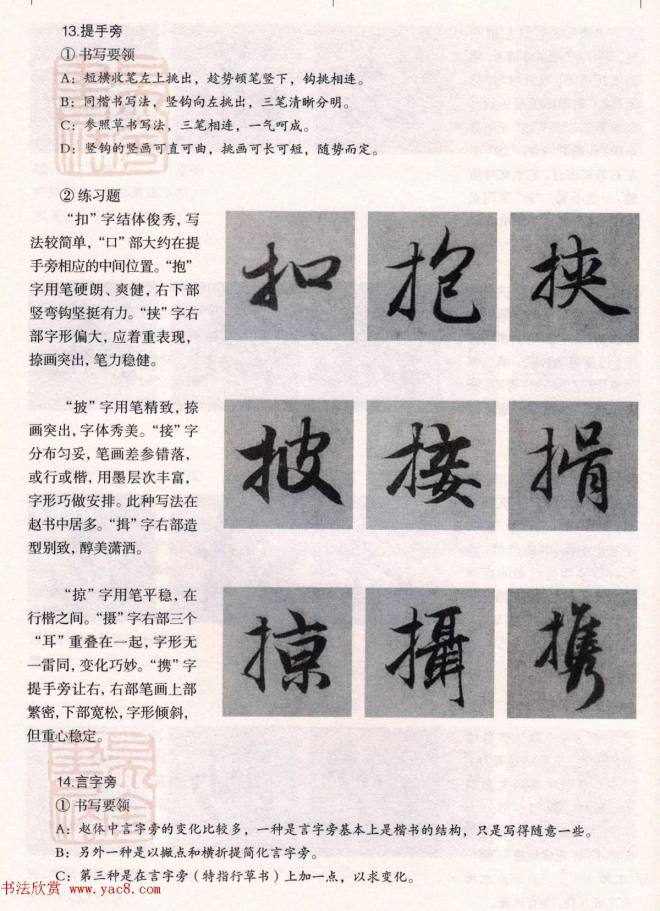 13.提手旁
① 书写要领
A：短横收笔左上挑出，趁势顿笔竖下，钩挑相连。
B：同楷书写法，竖钩向左挑出，三笔清晰分明。
C：参照草书写法，三笔相连，一气呵成。
D：竖钩的竖画可直可曲，挑画可长可短，随势而定。
② 练习题
“扣”字结体俊秀，写
法较简单，“口”部大约在提
手旁相应的中间位置。“抱”
字用笔硬朗、爽健，右下部
竖弯钩坚挺有力。“挟”字右
部字形偏大，应着重表现，
捺画突出，笔力稳健。
扣 抱 挟
“披”字用笔精致，捺
画突出，字体秀美。“接”字
分布匀妥，笔画差参错落，
或行或楷，用墨层次丰富，
字形巧做安排。此种写法在
赵书中居多。“揖”字右部造
型别致，醇美潇洒。
披 接 揖
“掠”字用笔平稳，在
行楷之间。“摄”字右部三个
“耳”重叠在一起，字形无
一雷同，变化巧妙。“携”字
提手旁让右，右部笔画上部
繁密，下部宽松，字形倾斜，
但重心稳定。
掠 攝 携
14.言字旁
① 书写要领
A：赵体中言字旁的变化比较多，一种是言字旁基本上是楷书的结构，只是写得随意一些。
B：另外一种是以撇点和横折提简化言字旁。
C：第三种是在言字旁（特指行草书）上加一点，以求变化。
书法欣赏 www.yac8.com